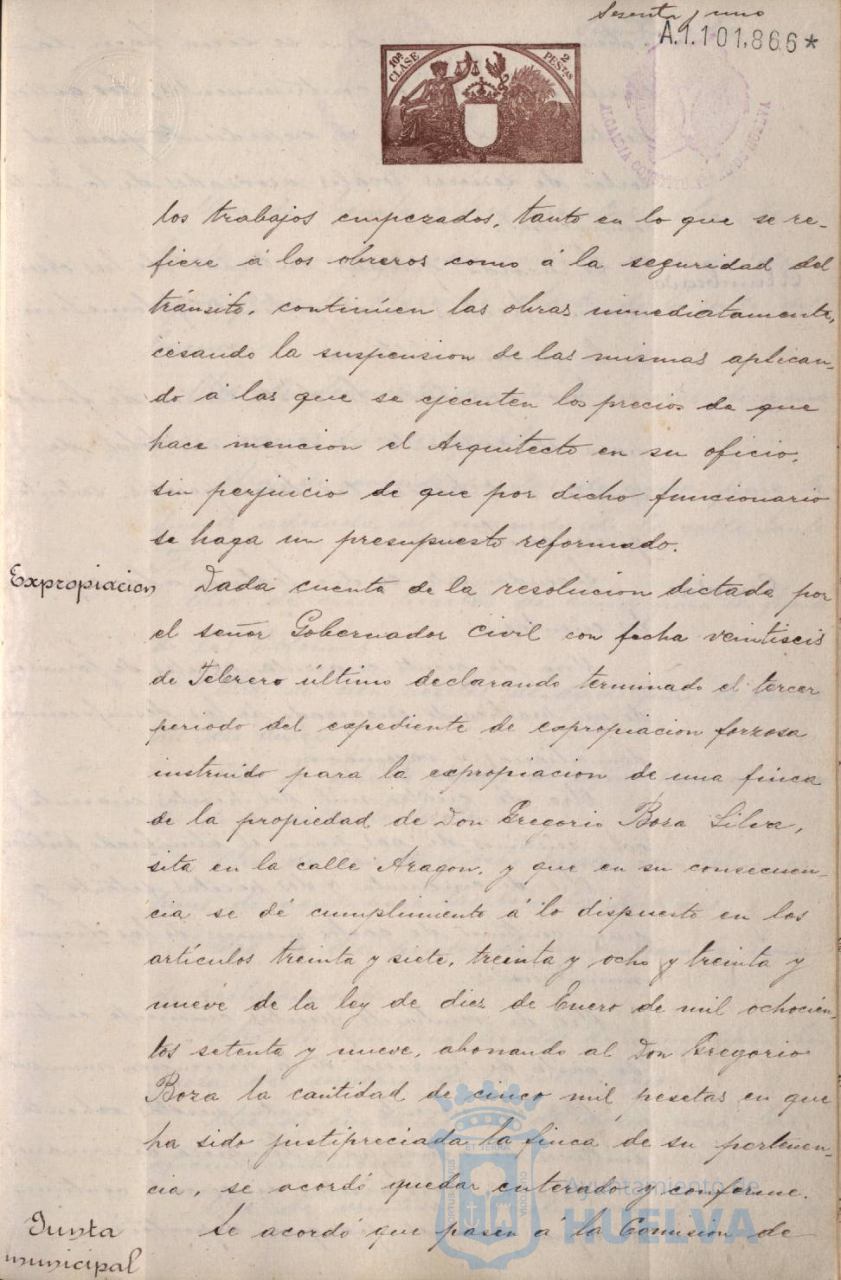 Sesenta y uno
A.1.101,866*
10ª CLASE
2 PESETAS
ALCALDIA CONSTITU DE HUELVA
los trabajos empezados, tanto en lo que se re-
fiere á los obreros como á la seguridad del
tránsito, continúen las obras inmediatamente,
cesando la suspension de las mismas aplican-
do á las que se ejecuten los precios de que
hace mencion el Arquitecto en su oficio,
sin perjuicio de que por dicho funcionario
se haga un presupuesto reformado.
Expropiacion
Dada cuenta de la resolucion dictada por
el señor Gobernador Civil con fecha veintiseis
de Febrero último declarando terminado el tercer
periodo del expediente de expropiacion forzosa
instruido para la expropiacion de una finca
de la propiedad de Don Gregorio Boza Silva,
sita en la calle Aragon, y que en su consecuen-
cia se dé cumplimiento á lo dispuesto en los
artículos treinta y siete, treinta y ocho y treinta y
nueve de la ley de diez de Enero de mil ochocien-
tos setenta y nueve, abonando al Don Gregorio
Boza la cantidad de cinco mil pesetas en que
ha sido justipreciada la finca de su pertenen-
cia, se acordó quedar enterado y conforme.
Junta
municipal
Se acordó que pasen á la Comisión de
Ayuntamiento de
HUELVA